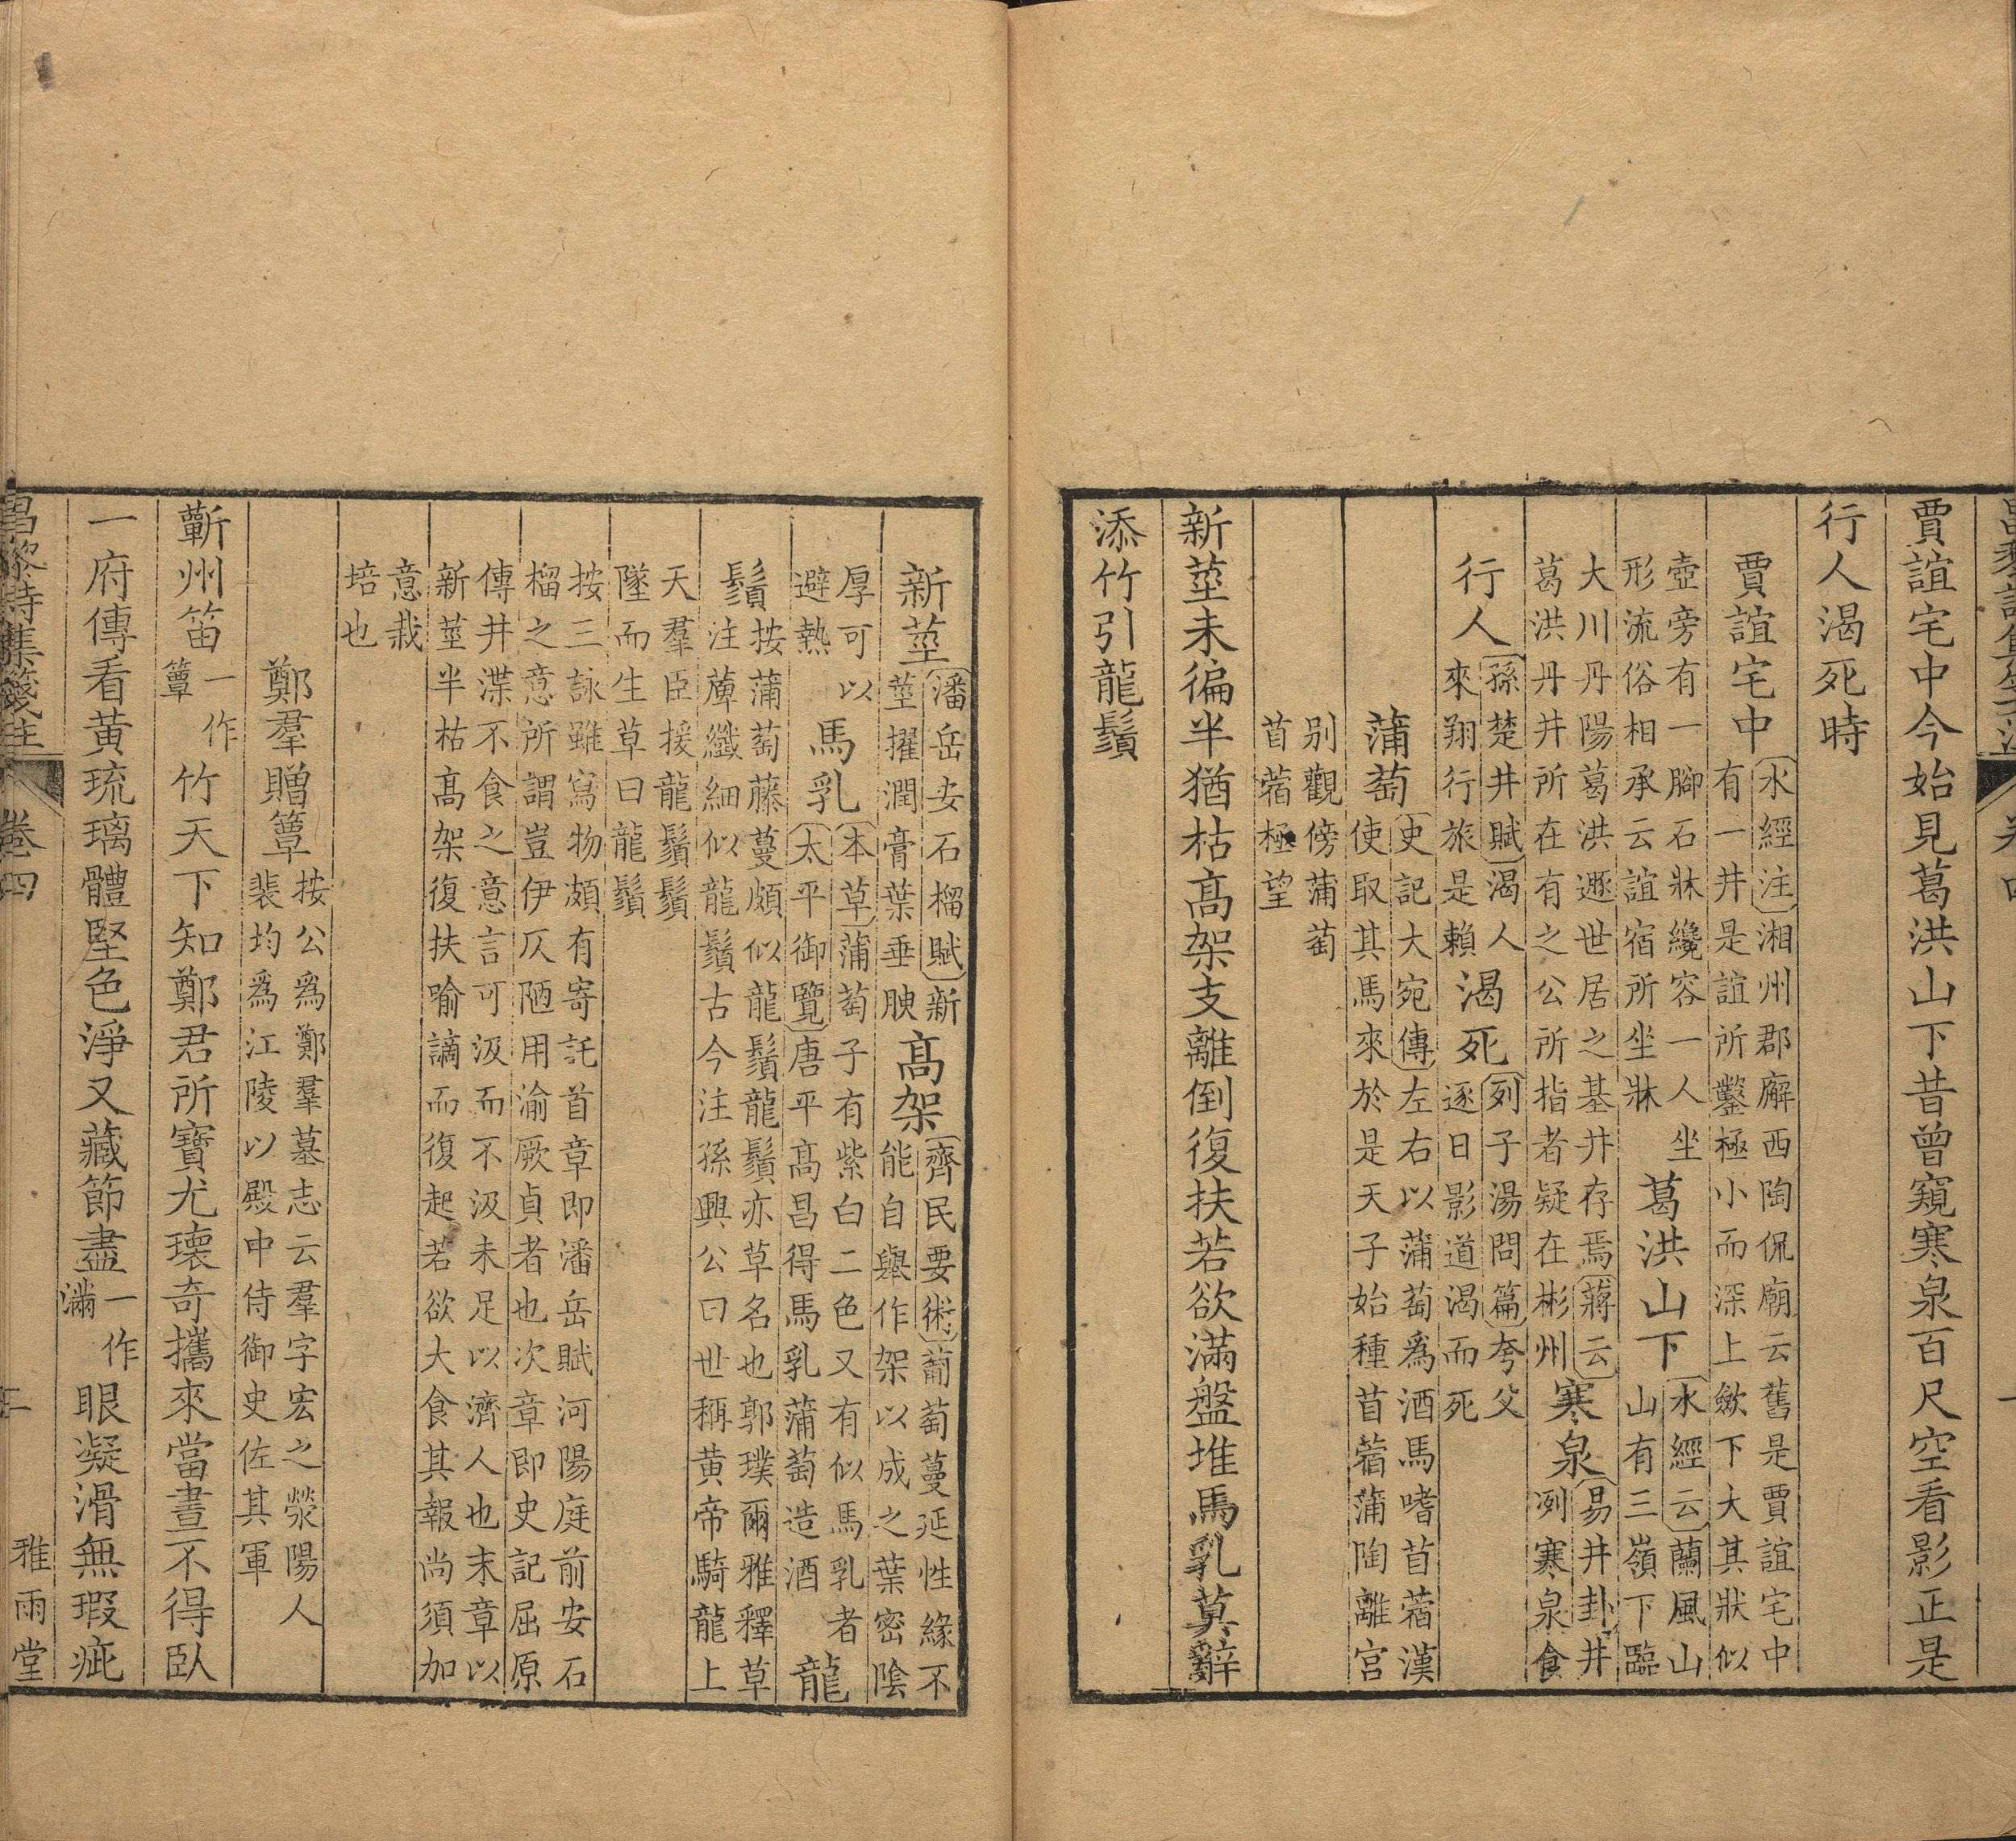 賈誼宅中今始見葛洪山下昔曾窺寒泉百尺空看影正是
行人渴死時
賈誼宅中水經注湘州郡廨西陶侃廟云舊是賈誼宅中有一井是誼所鑿極小而深上斂下大其狀似
壺旁有一腳石牀纔容一人坐形流俗相承云誼宿所坐牀葛洪山下水經云蘭風山山有三嶺下臨
大川丹陽葛洪遯世居之基井存焉蔣云葛洪丹井所在有之公所指者疑在彬州寒泉易井卦井冽寒泉食
行人孫楚井賦渴人來翔行旅是賴渴死列子湯問篇夸父逐日影道渴而死
蒲萄史記大宛傳左右以蒲萄爲酒馬嗜苜蓿漢使取其馬來於是天子始種苜蓿蒲陶離宮
别觀傍蒲萄苜蓿極望
新莖未徧半猶枯髙架支離倒復扶若欲滿盤堆馬乳莫辭
添竹引龍鬚
新莖潘岳安石榴賦新莖擢潤膏葉垂腴髙架齊民要術葡萄蔓延性緣不能自舉作架以成之葉密陰
厚可以避熱馬乳本草蒲萄子有紫白二色又有似馬乳者太平御覽唐平髙昌得馬乳蒲萄造酒龍
鬚按蒲萄藤蔓頗似龍鬚龍鬚亦草名也郭璞爾雅釋草注藨纖細似龍鬚古今注孫興公曰世稱黄帝騎龍上
天羣臣援龍鬚鬚墜而生草曰龍鬚
按三詠雖寫物頗有寄託首章即潘岳賦河陽庭前安石榴之意所謂豈伊仄陋用渝厥貞者也次章即史記屈原
傳井渫不食之意言可汲而不汲未足以濟人也末章以新莖半枯髙架復扶喻謫而復起若欲大食其報尚須加
意栽培也
鄭羣贈簟按公爲鄭羣墓志云羣字宏之滎陽人裴均爲江陵以殿中侍御史佐其軍
蘄州笛一作簟竹天下知鄭君所寶尤瓌奇攜來當晝不得臥
一府傳看黄琉璃體堅色淨又藏節盡一作滿眼凝滑無瑕疵
昌黎詩集箋注 卷四 雅雨堂